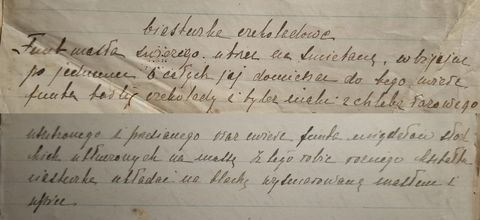 ciasteczka czekoladowe
Funt masła świeżego utrzeć na śmietanę, wbijając
po jednemu 6 całych jaj domieszać do tego ćwierć
funta tartej czekolady i tyleż mąki z chleba razowego
ususzonego i przesianego oraz ćwierć funta migdałów słod
kich utłuczonych na masę. Z tego robić różnego kształtu
ciasteczka układać na blachę wysmarowaną masłem i
upiec